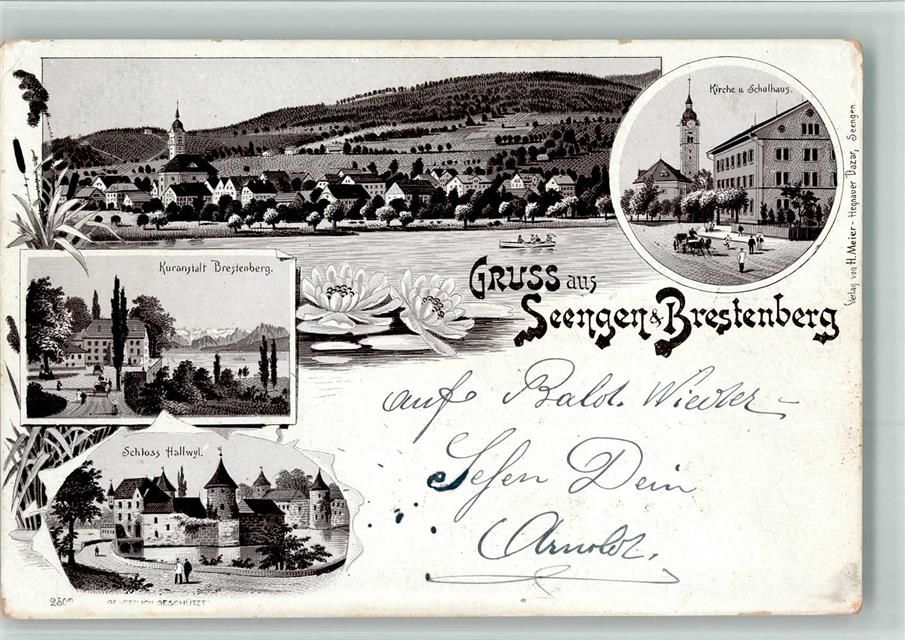 Kirche u. Schulhaus.
Verlag von H. Meier-Hegnauer Bazar, Seengen.
Kuranstalt Brestenberg.
GRUSS aus
Seengen & Brestenberg
auf Bald. Wieder-
Sehen Dein
Arnold.
Schloss Hallwyl.
2500
GESETZLICH GESCHÜTZT